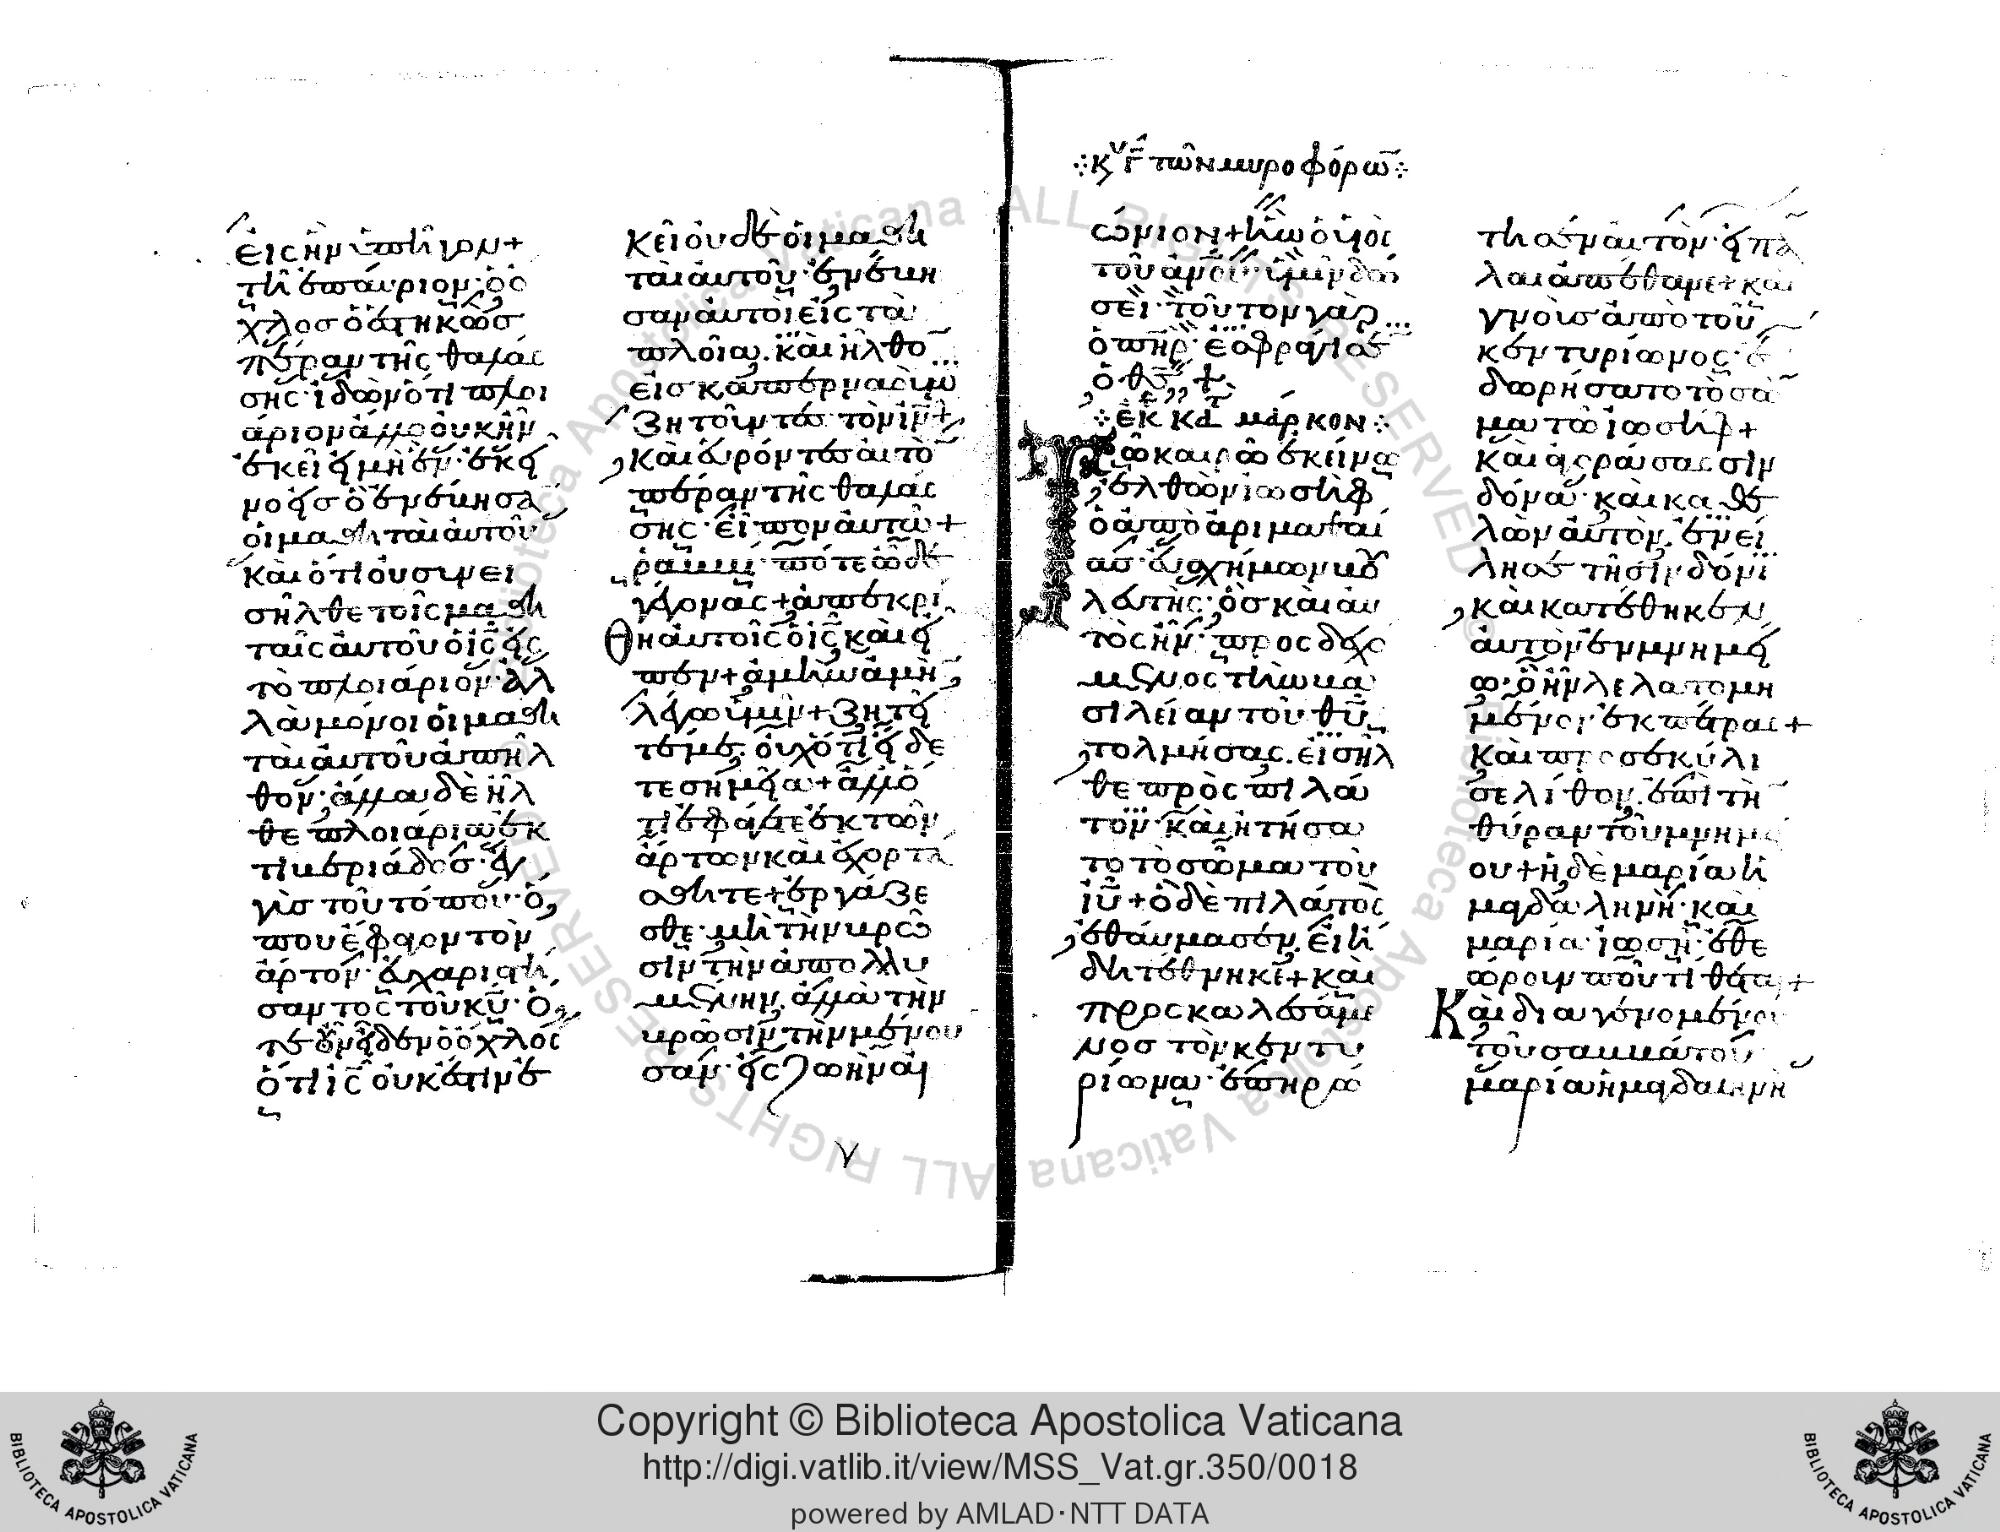 εἰς ἣν ἐπλήγην+
τῆ ἐπαύριον· ὁ ὄ
χλος ὁ ἑστηκὼς
πέραν τῆς θαλάσ
σης· ἰδὼν ὅτι πλοι
άριον ἄλλο οὐκ ἦν
ἐκεῖ εἰ μὴ ἓν· ἐκεῖ
νο εἰς ὃ ἐνέβησαν
οἱ μαθηταὶ αὐτοῦ
καὶ ὅτι οὐ συνει
σῆλθε τοῖς μαθη
ταῖς αὐτοῦ ὁ ις εἰς
τὸ πλοιάριον· ἀλ
λὰ μόνοι οἱ μαθη
ταὶ αὐτοῦ ἀπῆλ
θον· ἄλλα δὲ ἦλ
θε πλοιάρια ἐκ
τιβεριάδος· ἐγ
γὺς τοῦ τόπου· ὅ
που ἔφαγον τὸν
ἄρτον· εὐχαριστή
σαντος τοῦ κυ· ὅ
τε οὖν εἶδεν ὁ ὄχλος
ὅτι ις οὐκ ἔστιν ἐ
κεῖ οὐδὲ οἱ μαθη
ταὶ αὐτοῦ· ἐνέβη
σαν αὐτοὶ εἰς τὰ
πλοῖα· καὶ ἦλθο
εἰς καπερναοὺμ
ζητοῦντες τὸν ιν+
καὶ εὑρόντες αὐτὸ
πέραν τῆς θαλάσ
σης· εἶπον αὐτῶ+
ῥαββὶ· πότε ὧδε
γέγονας+ ἀπεκρί
θη αὐτοῖς ὁ ις καὶ εἶ
πεν+ ἀμὴν ἀμὴν
λέγω ὑμῖν+ ζητεῖ
τέ με· οὐχ ὅτι εἴδε
τε σημεῖα+ ἀλλ' ὅ
τι ἐφάγετε ἐκ τῶν
ἄρτων καὶ ἐχορτά
σθητε+ ἐργάζε
σθε· μὴ τὴν βρῶ
σιν τὴν ἀπολλυ
μένην· ἀλλὰ τὴν
βρῶσιν τὴν μένου
σαν· εἰς ζωὴν αἰ
κυ γ τῶν μυροφόρω
ώνιον+ ἣν ὁ υἱὸς
τοῦ ἀνου· ὑμῖν δώ
σει· τοῦτον γὰρ
ὁ πηρ· ἐσφράγισε
ὁ θς+
ἐκ κατ μάρκον
Τῶ καιρῶ ἐκείνω
ἐλθὼν ἰωσὴφ
ὁ ἀπὸ ἀριμαθαί
ας· εὐσχήμων βου
λευτὴς· ὃς καὶ αὐ
τὸς ἦν· προσδεχό
μενος τὴν βα
σιλείαν τοῦ θυ
τολμήσας· εἰσῆλ
θε πρὸς πιλά
τον· καὶ ἠτήσα
το τὸ σῶμα τοῦ
ιυ+ ὁ δὲ πιλάτος
ἐθαύμασεν· εἰ ἤ
δη τέθνηκε+ καὶ
προσκαλεσάμε
νος τὸν κεντυ
ρίωνα· ἐπηρώ
τησεν αὐτὸν· εἰ πά
λαι ἀπέθανε+ καὶ
γνοὺς ἀπὸ τοῦ
κεντυρίωνος· ἐ
δωρήσατο τὸ σῶ
μα τῶ ἰωσήφ+
καὶ ἀγοράσας σιν
δόνα· καὶ καθε
λὼν αὐτὸν· ἐνεί
λησε τῆ σινδόνι
καὶ κατέθηκεν
αὐτὸν ἐν μνημεί
ω· ὃ ἦν λελατομη
μένον ἐκ πέτρας+
καὶ προσεκύλι
σε λίθον· ἐπὶ τὴν
θύραν τοῦ μνημεί
ου+ ἡ δὲ μαρία ἡ
μαγδαληνὴ· καὶ
μαρία· ἰωσῆ· ἐθε
ώρουν ποῦ τίθεται+
Καὶ διαγενομένου
τοῦ σαββάτου
μαρία ἡ μαγδαληνὴ
Copyright © Biblioteca Apostolica Vaticana
http://digi.vatlib.it/view/MSS_Vat.gr.350/0018
powered by AMLAD·NTT DATA
BIBLIOTECA APOSTOLICA VATICANA
BIBLIOTECA APOSTOLICA VATICANA
© Biblioteca Apostolica Vaticana ALL RIGHTS RESERVED
© Biblioteca Apostolica Vaticana ALL RIGHTS RESERVED